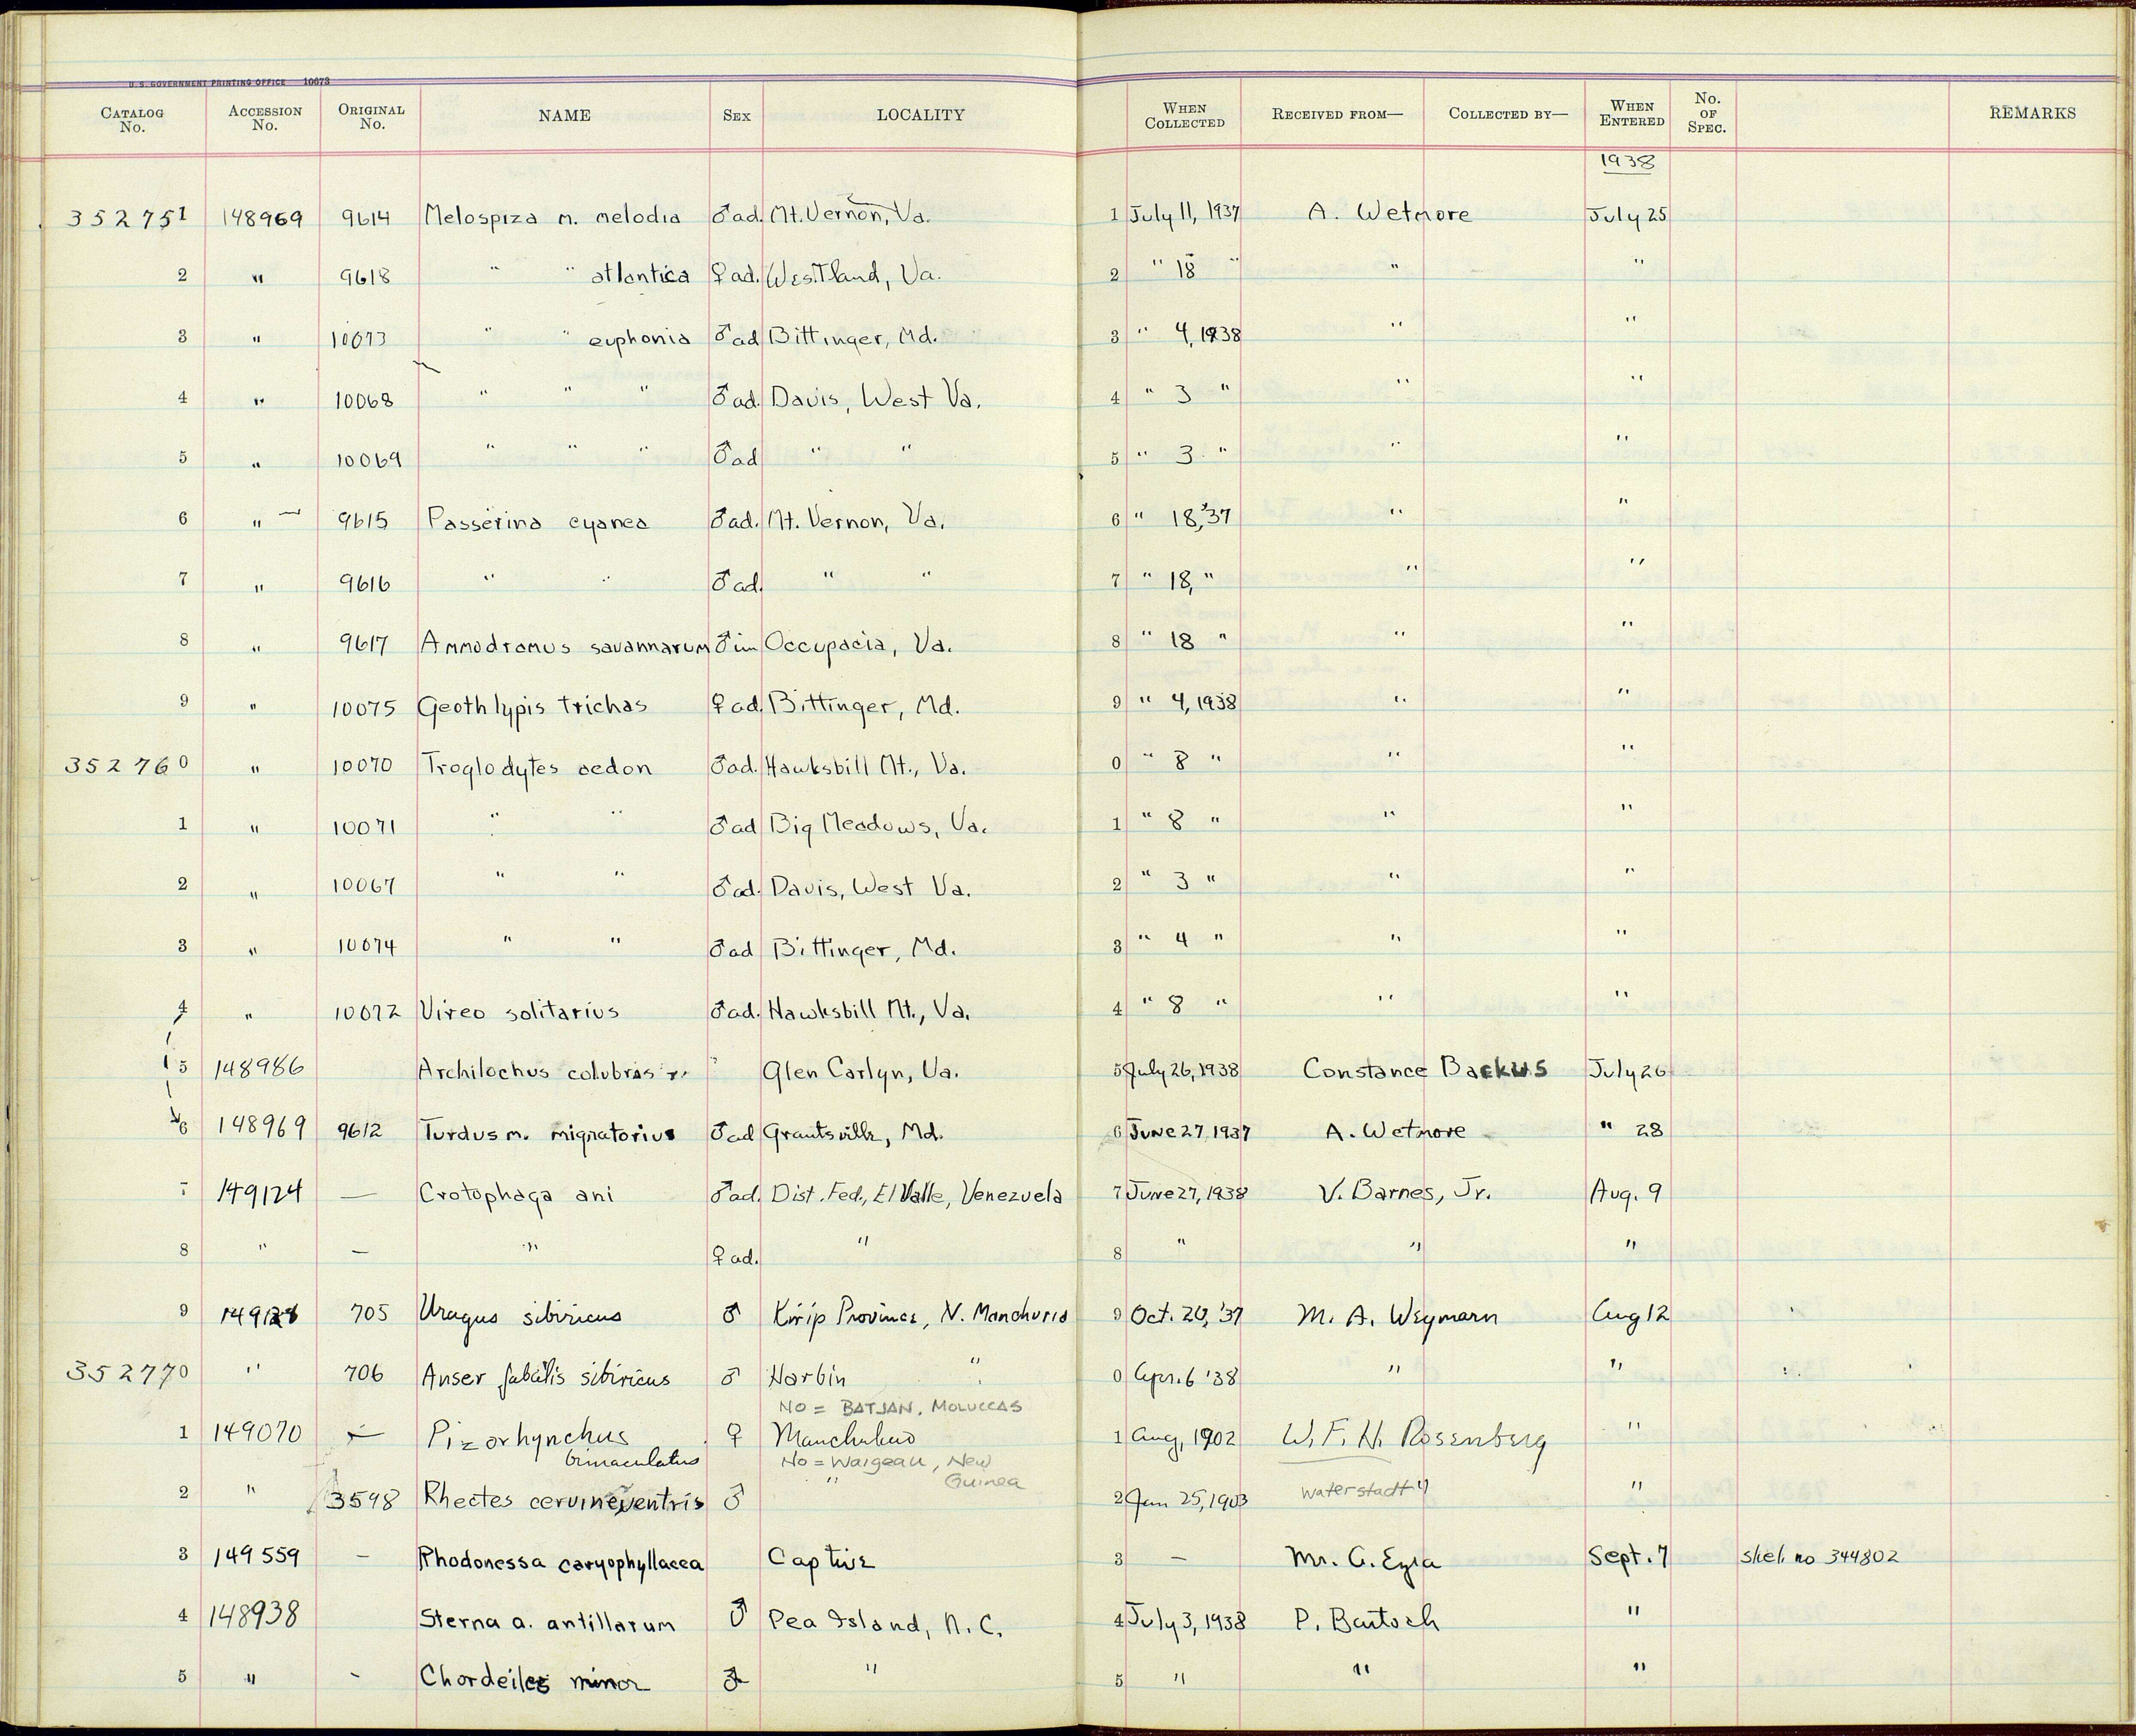 U. S. GOVERNMENT PRINTING OFFICE 10673
CATALOG No. ACCESSION No. ORIGINAL No. NAME SEX LOCALITY WHEN COLLECTED RECEIVED FROM— COLLECTED BY— WHEN ENTERED No. OF SPEC. REMARKS
1938
352751 148969 9614 Melospiza m. melodia ♂ad. Mt. Vernon, Va. 1 July 11, 1937 A. Wetmore July 25
2 " 9618 " " atlantica ♀ad. Westland, Va. 2 " 18 " " "
3 " 10073 " " euphonia ♂ad Bittinger, Md. 3 " 4, 1938 " "
4 " 10068 " " " ♂ad. Davis, West Va. 4 " 3 " " "
5 " 10069 " " " ♂ad " " 5 " 3 " " "
6 " 9615 Passerina cyanea ♂ad. Mt. Vernon, Va. 6 " 18, '37 " "
7 " 9616 " " ♂ad. " " 7 " 18, " " "
8 " 9617 Ammodramus savannarum ♂im Occupacia, Va. 8 " 18 " " "
9 " 10075 Geothlypis trichas ♀ad. Bittinger, Md. 9 " 4, 1938 " "
352760 " 10070 Troglodytes aedon ♂ad. Hawksbill Mt., Va. 0 " 8 " " "
1 " 10071 " " ♂ad Big Meadows, Va. 1 " 8 " " "
2 " 10067 " " ♂ad. Davis, West Va. 2 " 3 " " "
3 " 10074 " " ♂ad Bittinger, Md. 3 " 4 " " "
4 " 10072 Vireo solitarius ♂ad. Hawksbill Mt., Va. 4 " 8 " " "
5 148986 Archilochus colubris Glen Carlyn, Va. 5 July 26, 1938 Constance Backus July 26
6 148969 9612 Turdus m. migratorius ♂ad Grantsville, Md. 6 June 27, 1937 A. Wetmore " 28
7 149124 — Crotophaga ani ♂ad. Dist. Fed., El Valle, Venezuela 7 June 27, 1938 V. Barnes, Jr. Aug. 9
8 " — " ♀ad. " 8 " " "
9 705 Uragus sibiricus ♂ Kirip Province, N. Manchuria 9 Oct. 20, '37 M. A. Weymarn Aug 12
352770 " 706 Anser fabalis sibiricus ♂ Harbin " 0 Apr. 6 '38 " "
No = BATJAN, MOLUCCAS
1 149070 — Pizorhynchus ♀ Manchukuo 1 Aug, 1902 W. F. H. Rosenberg "
bimaculatus No = Waigeau, New
Guinea
2 " 3598 Rhectes cervineiventris ♂ " 2 Jan 25, 1903 Waterstadt " "
3 149559 — Rhodonessa caryophyllacea Captive 3 — Mr. A. Ezra Sept. 7 skel. no 344802
4 148938 Sterna a. antillarum ♂ Pea Island, N. C. 4 July 3, 1938 P. Bartsch "
5 " - Chordeiles minor " 5 " " "